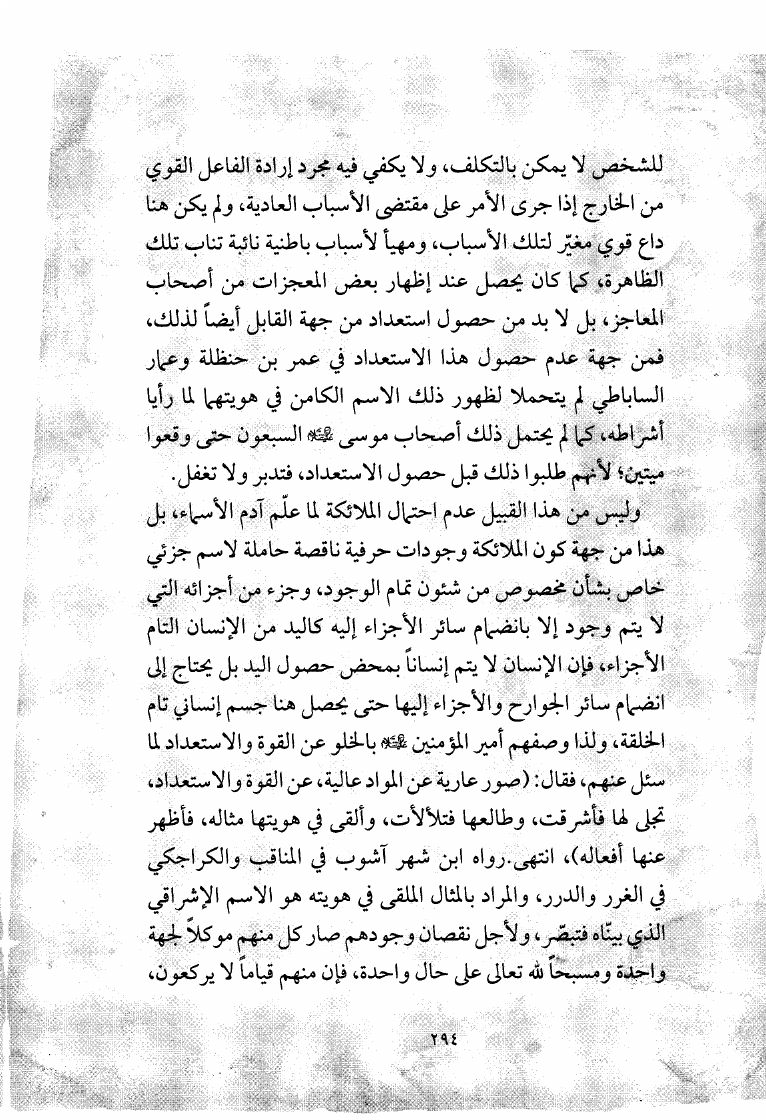 للشخص لا يمكن بالتكلف، ولا يكفي فيه مجرد إرادة الفاعل القوي
من الخارج إذا جرى الأمر على مقتضى الأسباب العادية، ولم يكن هنا
داع قوي مغيّر لتلك الأسباب، ومهيأ لأسباب باطنية نائبة تناب تلك
الظاهرة، كما كان يحصل عند إظهار بعض المعجزات من أصحاب
المعاجز، بل لا بد من حصول استعداد من جهة القابل أيضاً لذلك،
فمن جهة عدم حصول هذا الاستعداد في عمر بن حنظلة وعمار
الساباطي لم يتحملا لظهور ذلك الاسم الكامن في هويتهما لما رأيا
أشراطه، كما لم يحتمل ذلك أصحاب موسى السبعون حتى وقعوا
ميتين؛ لأنهم طلبوا ذلك قبل حصول الاستعداد، فتدبر ولا تغفل.
وليس من هذا القبيل عدم احتمال الملائكة لما علّم آدم الأسماء، بل
هذا من جهة كون الملائكة وجودات حرفية ناقصة حاملة لاسم جزئي
خاص بشأن مخصوص من شئون تمام الوجود، وجزء من أجزائه التي
لا يتم وجود إلا بانضمام سائر الأجزاء إليه كاليد من الإنسان التام
الأجزاء، فإن الإنسان لا يتم إنساناً بمحض حصول اليد بل يحتاج إلى
انضمام سائر الجوارح والأجزاء إليها حتى يحصل هنا جسم إنساني تام
الخلقة، ولذا وصفهم أمير المؤمنين بالخلو عن القوة والاستعداد لما
سئل عنهم، فقال: (صور عارية عن المواد عالية، عن القوة والاستعداد،
تجلى لها فأشرقت، وطالعها فتلألأت، وألقى في هويتها مثاله، فأظهر
عنها أفعاله)، انتهى.رواه ابن شهر آشوب في المناقب والكراجكي
في الغرر والدرر، والمراد بالمثال الملقى في هويته هو الاسم الإشراقي
الذي بينّاه فتبصّر، ولأجل نقصان وجودهم صار كل منهم موكلاً لجهة
واحدة ومسبحاً لله تعالى على حال واحدة، فإن منهم قياماً لا يركعون،
٢٩٤